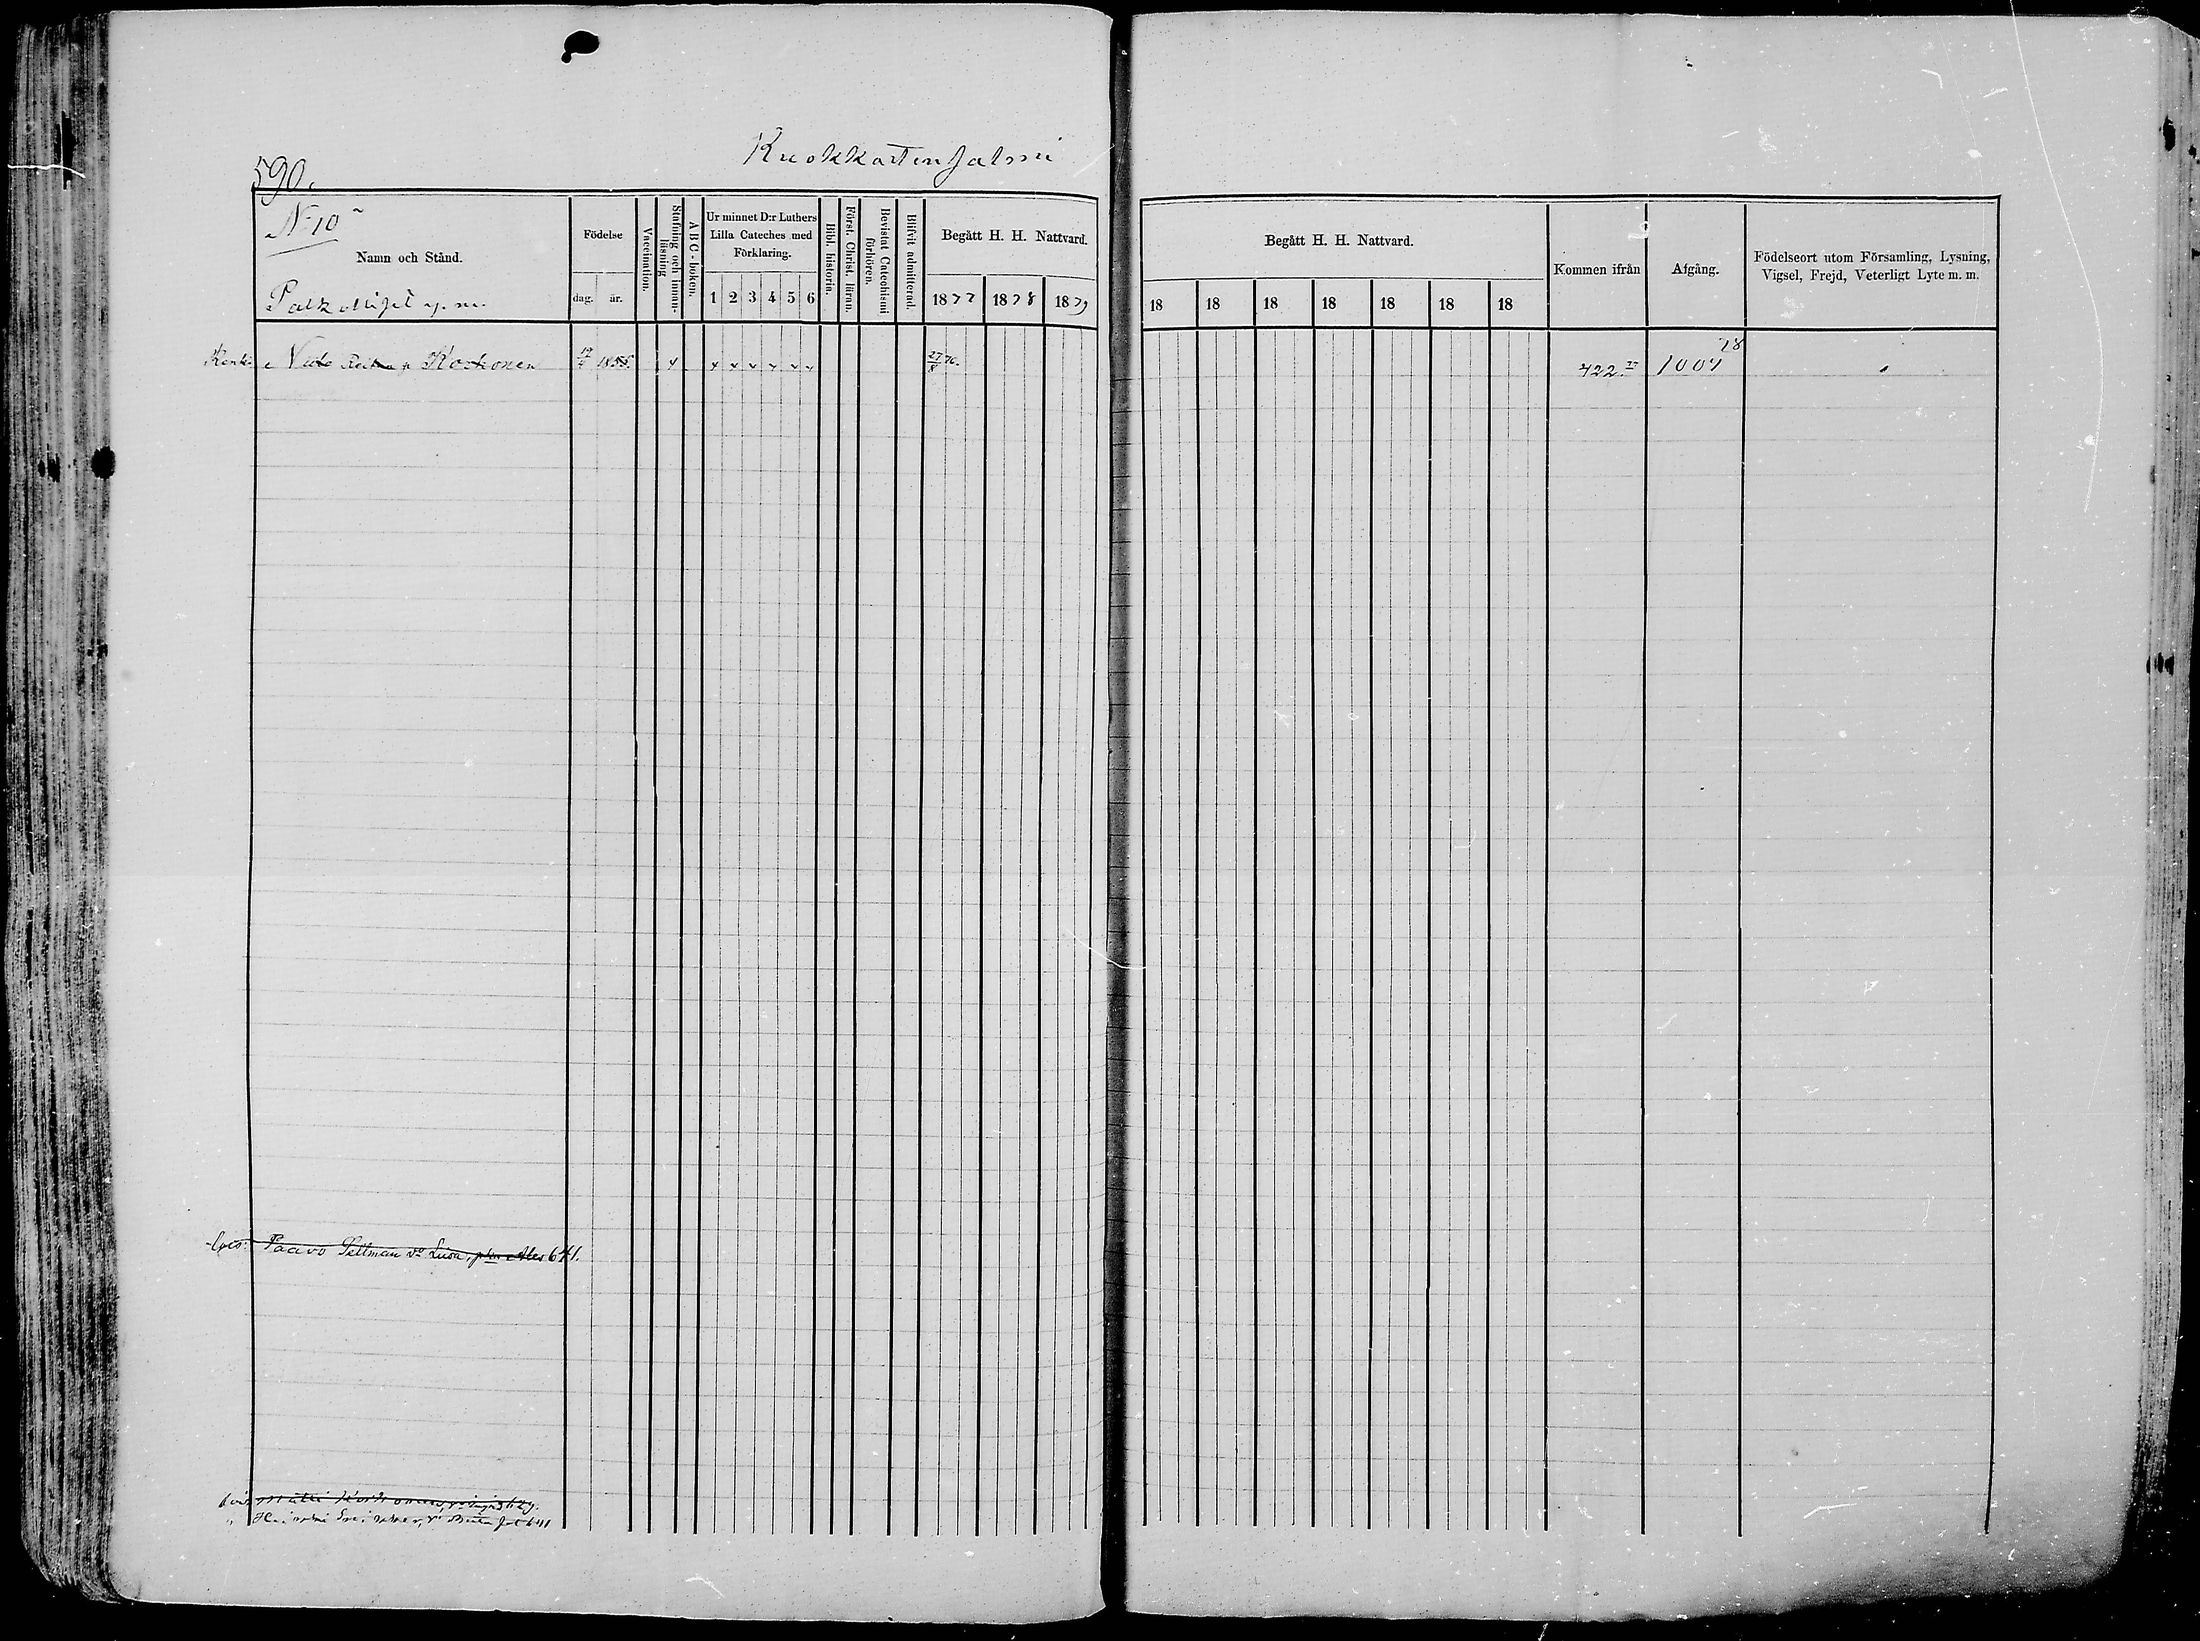 590.
N:o 10
Namn och Stånd.
Födelse
dag. år.
Vaccination.
Stafning och innan-läsning
A B C - boken.
Ur minnet D:r Luthers
Lilla Cateches med
Förklaring.
1 2 3 4 5 6
Bibl. historia.
Först. Christ. läran.
Bevistat Catechismi förhören.
Blifvit admitterad.
Begått H. H. Nattvard.
1877 1878 1879
Kostonen
19/4 1855.
x
x x x x x x
27/8 76.
Paavo Sellman v:o Liisa, 641.
Begått H. H. Nattvard.
18 18 18 18 18 18 18
Kommen ifrån
Afgång.
Födelseort utom Församling, Lysning,
Vigsel, Frejd, Veterligt Lyte m. m.
722. 1007 78